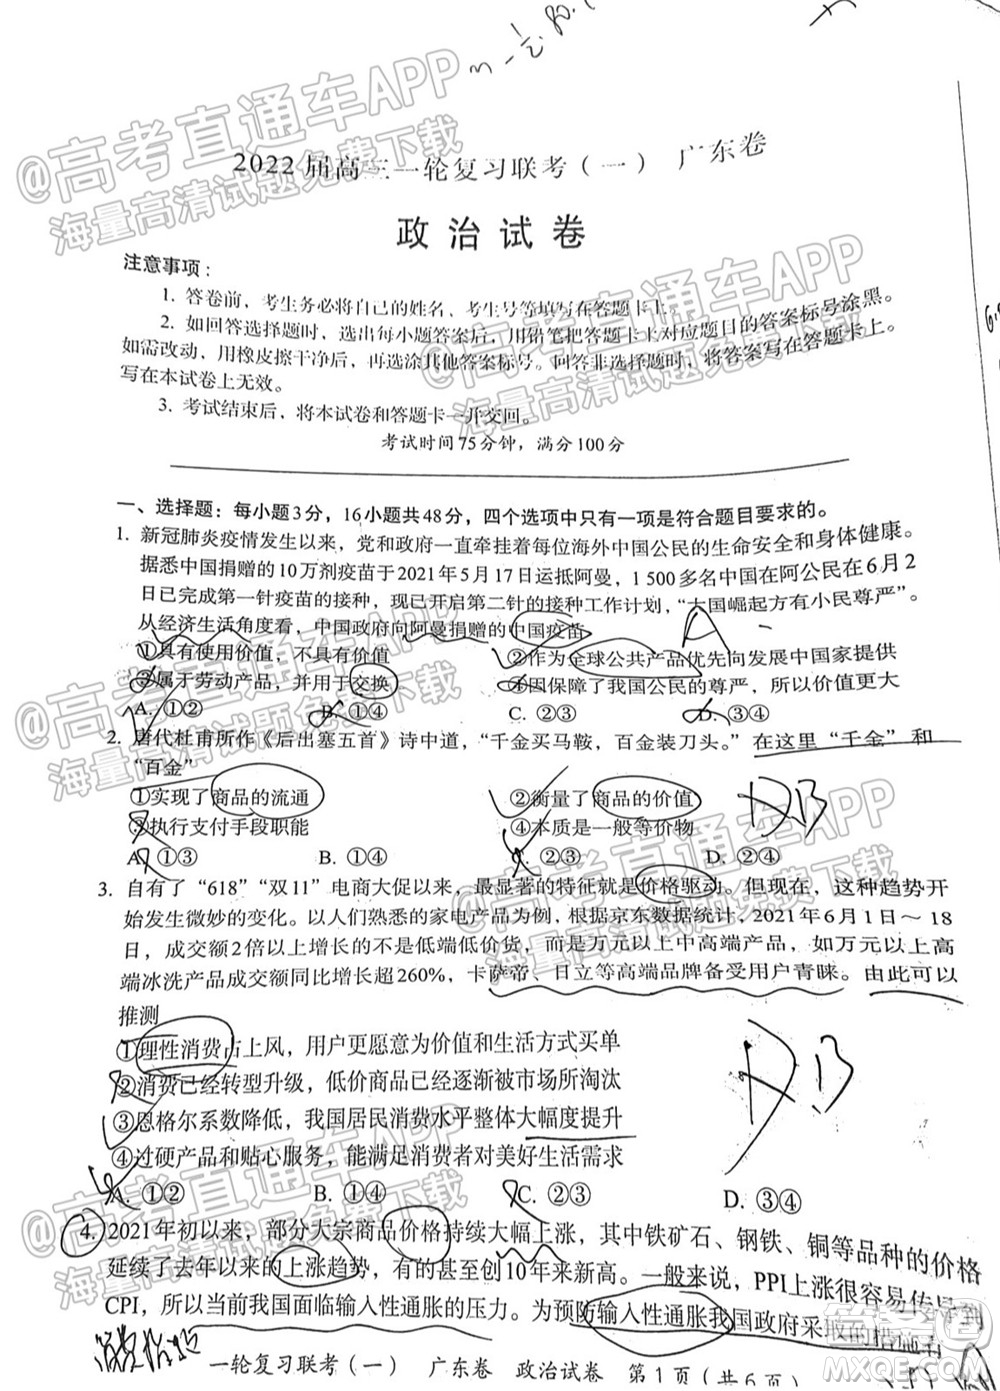 2022届高三一轮复习联考(一) 广东卷
政治试卷
注意事项:
1. 答卷前,考生务必将自己的姓名、考生号等填写在答题卡上。
2. 如回答选择题时,选出每小题答案后,用铅笔把答题卡上对应题目的答案标号涂黑。
如需改动,用橡皮擦干净后,再选涂其他答案标号。回答非选择题时,将答案写在答题卡上。
写在本试卷上无效。
3. 考试结束后,将本试卷和答题卡一并交回。
考试时间75分钟,满分100分
一、选择题:每小题3分,16小题共48分,四个选项中只有一项是符合题目要求的。
1. 新冠肺炎疫情发生以来,党和政府一直牵挂着每位海外中国公民的生命安全和身体健康。
据悉中国捐赠的10万剂疫苗于2021年5月17日运抵阿曼,1 500多名中国在阿公民在6月2
日已完成第一针疫苗的接种,现已开启第二针的接种工作计划,“大国崛起方有小民尊严”。
从经济生活角度看,中国政府向阿曼捐赠的中国疫苗
①具有使用价值,不具有价值
②作为全球公共产品优先向发展中国家提供
③属于劳动产品,并用于交换
④因保障了我国公民的尊严,所以价值更大
A. ①②
B. ①④
C. ②③
D. ③④
2. 唐代杜甫所作《后出塞五首》诗中道,“千金买马鞍,百金装刀头。”在这里“千金”和
“百金”
①实现了商品的流通
②衡量了商品的价值
③执行支付手段职能
④本质是一般等价物
A. ①③
B. ①④
C. ②③
D. ②④
3. 自有了“618”“双11”电商大促以来,最显著的特征就是价格驱动。但现在,这种趋势开
始发生微妙的变化。以人们熟悉的家电产品为例,根据京东数据统计,2021年6月1日~18
日,成交额2倍以上增长的不是低端低价货,而是万元以上中高端产品,如万元以上高
端冰洗产品成交额同比增长超260%,卡萨帝、日立等高端品牌备受用户青睐。由此可以
推测
①理性消费占上风,用户更愿意为价值和生活方式买单
②消费已经转型升级,低价商品已经逐渐被市场所淘汰
③恩格尔系数降低,我国居民消费水平整体大幅度提升
④过硬产品和贴心服务,能满足消费者对美好生活需求
A. ①②
B. ①④
C. ②③
D. ③④
4. 2021年年初以来,部分大宗商品价格持续大幅上涨,其中铁矿石、钢铁、铜等品种的价格
延续了去年以来的上涨趋势,有的甚至创10年来新高。一般来说,PPI上涨很容易传导到
CPI,所以当前我国面临输入性通胀的压力。为预防输入性通胀我国政府采取的措施有
一轮复习联考(一) 广东卷 政治试卷 第1页(共6页)
@高考直通车APP
海量高清试题免费下载
MXQE.COM